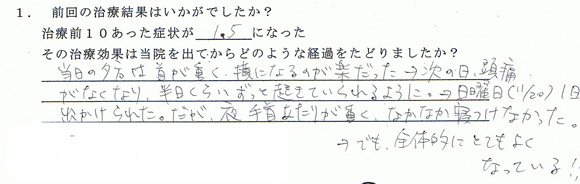 １．前回の治療結果はいかがでしたか？
治療前１０あった症状が 1.5 になった
その治療効果は当院を出てからどのような経過をたどりましたか？
当日の夕方は首が重く、横になるのが楽だった→次の日、頭痛
がなくなり、半日くらいずっと起きていられるように。→日曜日(11/20) 1日
出かけられた。だが、夜 手首あたりが重く、なかなか寝つけなかった。
→でも、全体的にとてもよく
なっている!!